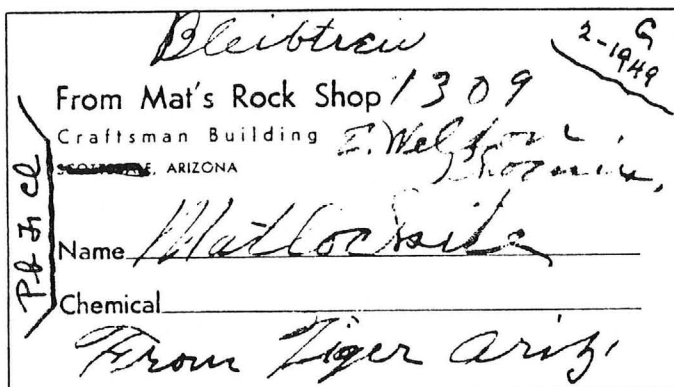 Bleibtreu
2-1949
G
From Mat's Rock Shop 1309
Craftsman Building E. Weldon
SCOTTSDALE, ARIZONA Phoenix,
Pb Fr Cl
Name Matlockite
Chemical
From Tiger Ariz.